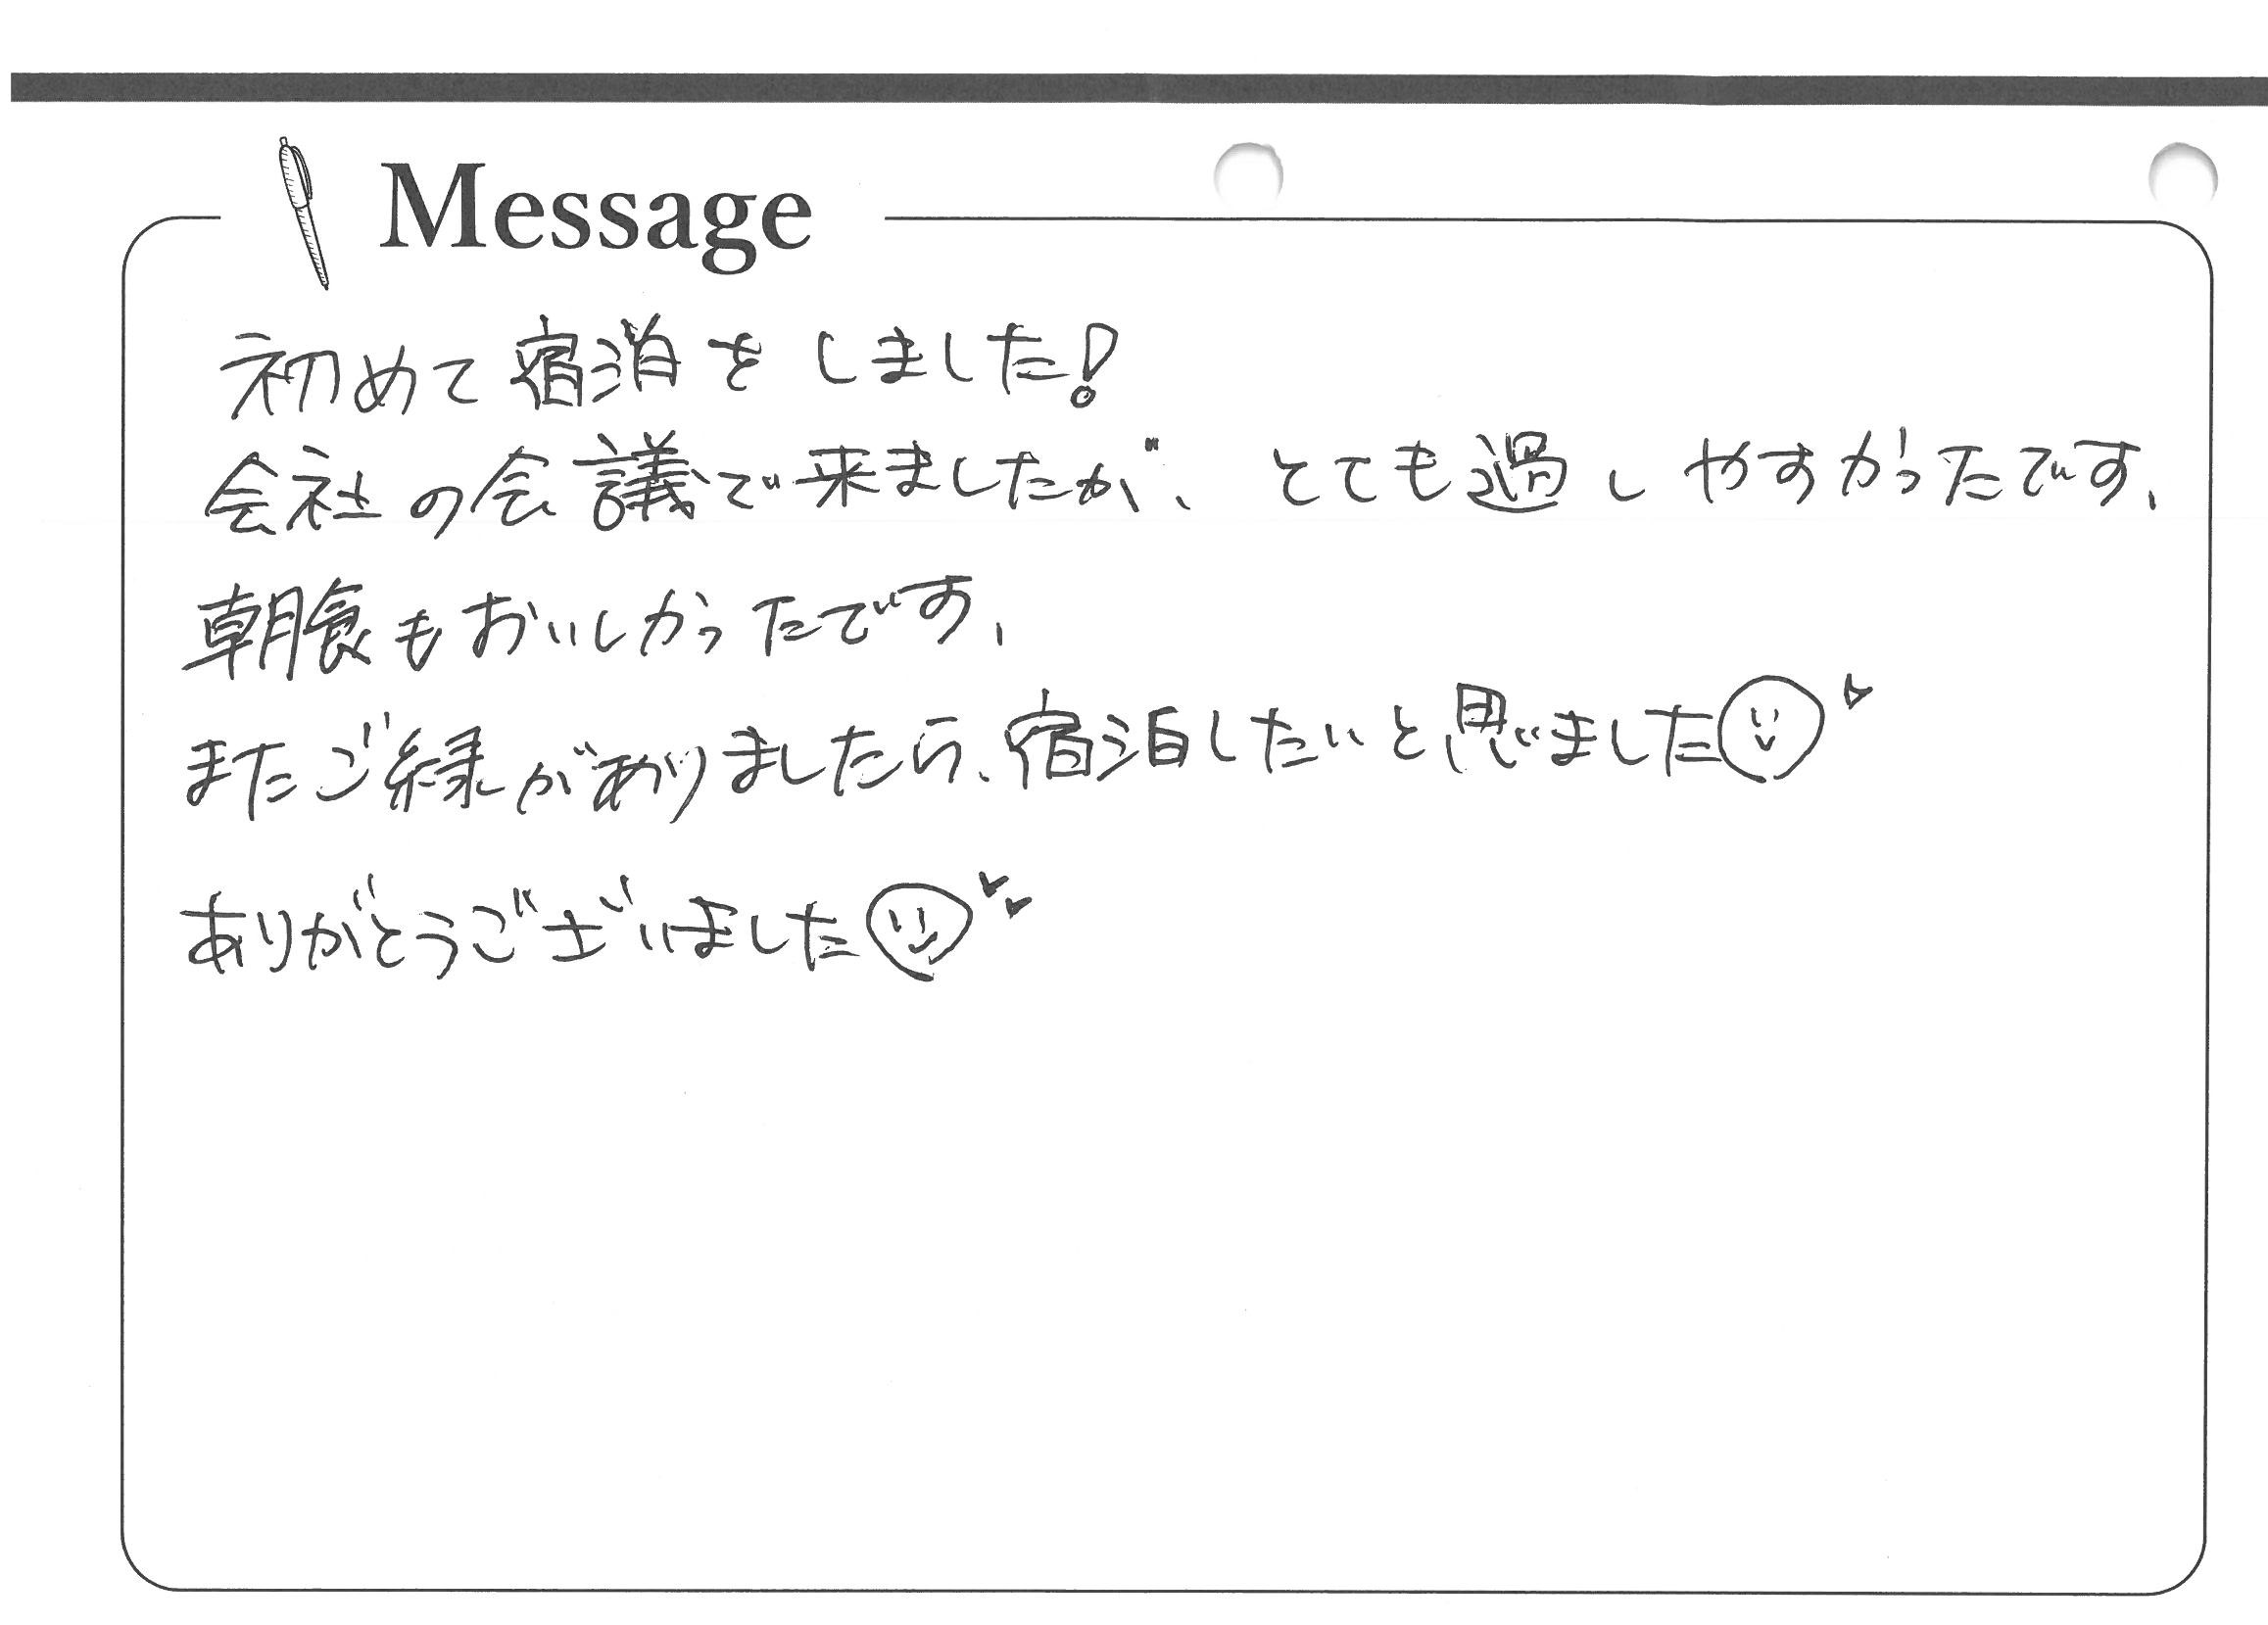 Message
初めて宿泊をしました!
会社の会議で来ましたが、とても過しやすかったです、
朝食もおいしかったです、
またご縁がありましたら、宿泊したいと思いました
ありがとうございました